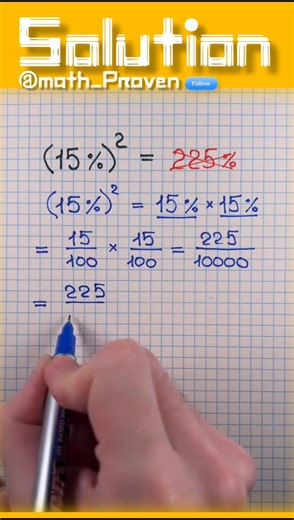 Solution
@math_Proven Follow
(15%)² = 225%
(15%)² = 15% × 15%
= 15/100 × 15/100 = 225/10000
= 225